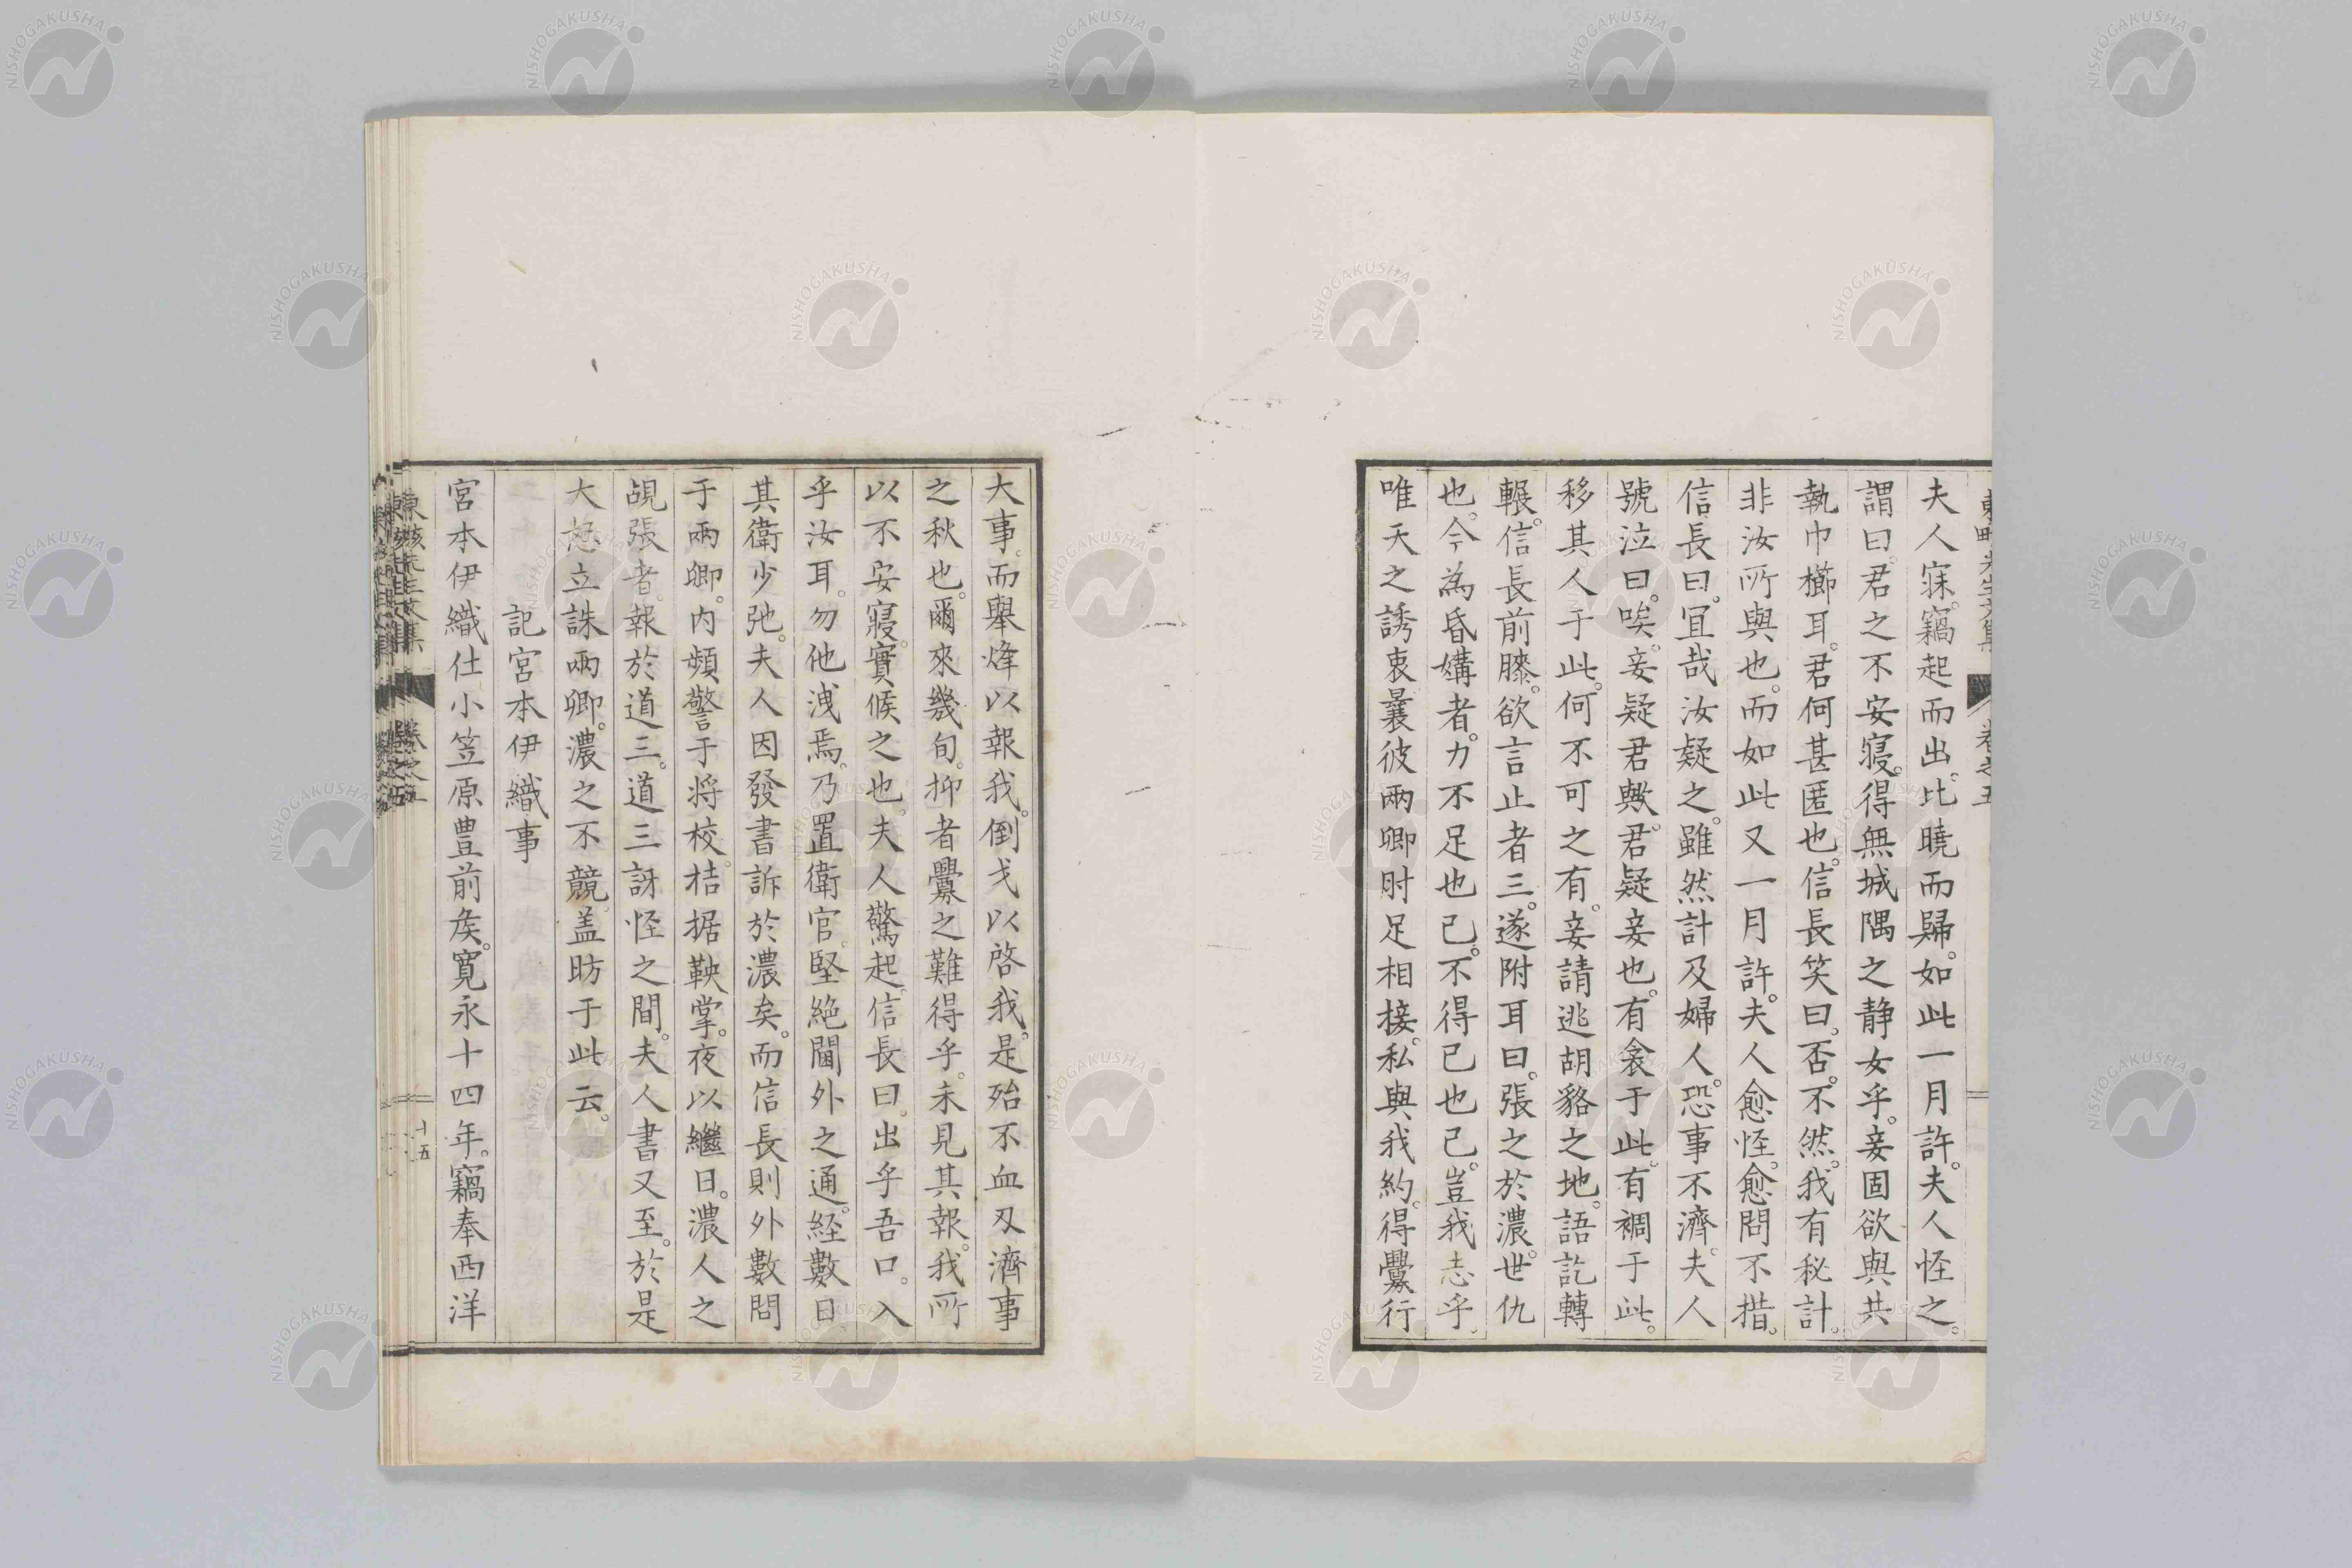 夫人寐。竊起而出。比曉而歸。如此一月許。夫人怪之。
謂曰。君之不安寢。得無城隅之静女乎。妾固欲與共
執巾櫛耳。君何甚匿也。信長笑曰。否。不然。我有秘計。
非汝所與也。而如此又一月許。夫人愈怪。愈問不措。
信長曰。宜哉汝疑之。雖然計及婦人。恐事不濟。夫人
號泣曰。唉。妾疑君歟。君疑妾也。有衾于此。有裯于此。
移其人于此。何不可之有。妾請逃胡貉之地。語訖轉
輾。信長前膝。欲言止者三。遂附耳曰。張之於濃。世仇
也。今為昏媾者。力不足也已。不得已也已。豈我志乎。
唯天之誘衷。曩彼兩卿肘足相接。私與我約。得釁行
大事。而舉烽以報我。倒戈以啓我。是殆不血刄濟事
之秋也。爾來幾旬。抑者釁之難得乎。未見其報。我所
以不安寢。實候之也。夫人驚起。信長曰。出乎吾口。入
乎汝耳。勿他洩焉。乃置衛官。堅絶閫外之通。経數日
其衛少弛。夫人因發書訴於濃矣。而信長則外數問
于兩卿。内頻警于将校。拮据鞅掌。夜以繼日。濃人之
覘張者。報於道三。道三訝怪之間。夫人書又至。於是
大怒立誅兩卿。濃之不競。盖昉于此云。
記宮本伊織事
宮本伊織仕小笠原豊前矦。寛永十四年。竊奉西洋
卷之五
十五
NISHOGAKUSHA